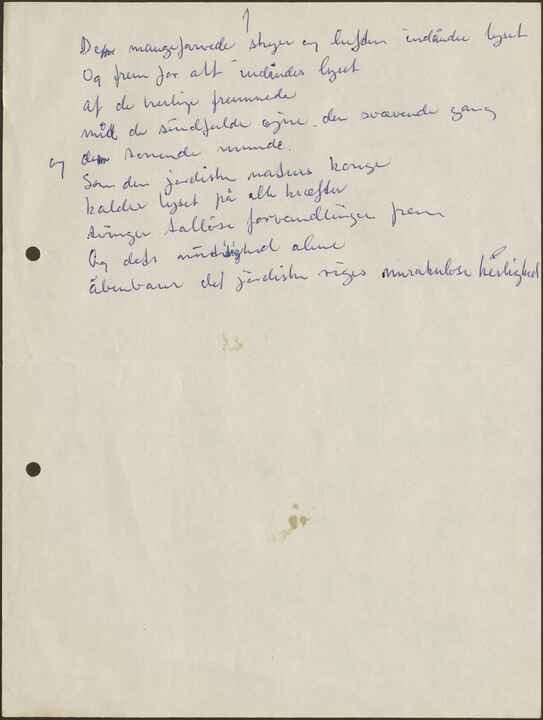 1
De mangefarvede skyer og luften indånder lyset
Og frem for alt indåndes lyset
af de herlige fremmede
med de sindfulde øjne, den svævende gang
og den tonende munde.
Som den jordiske naturs konge
kalder lyset på alle kræfter
tvinger talløse forvandlinger frem
Og dets nærværd alene
åbenbarer det jordiske riges mirakuløse herlighed